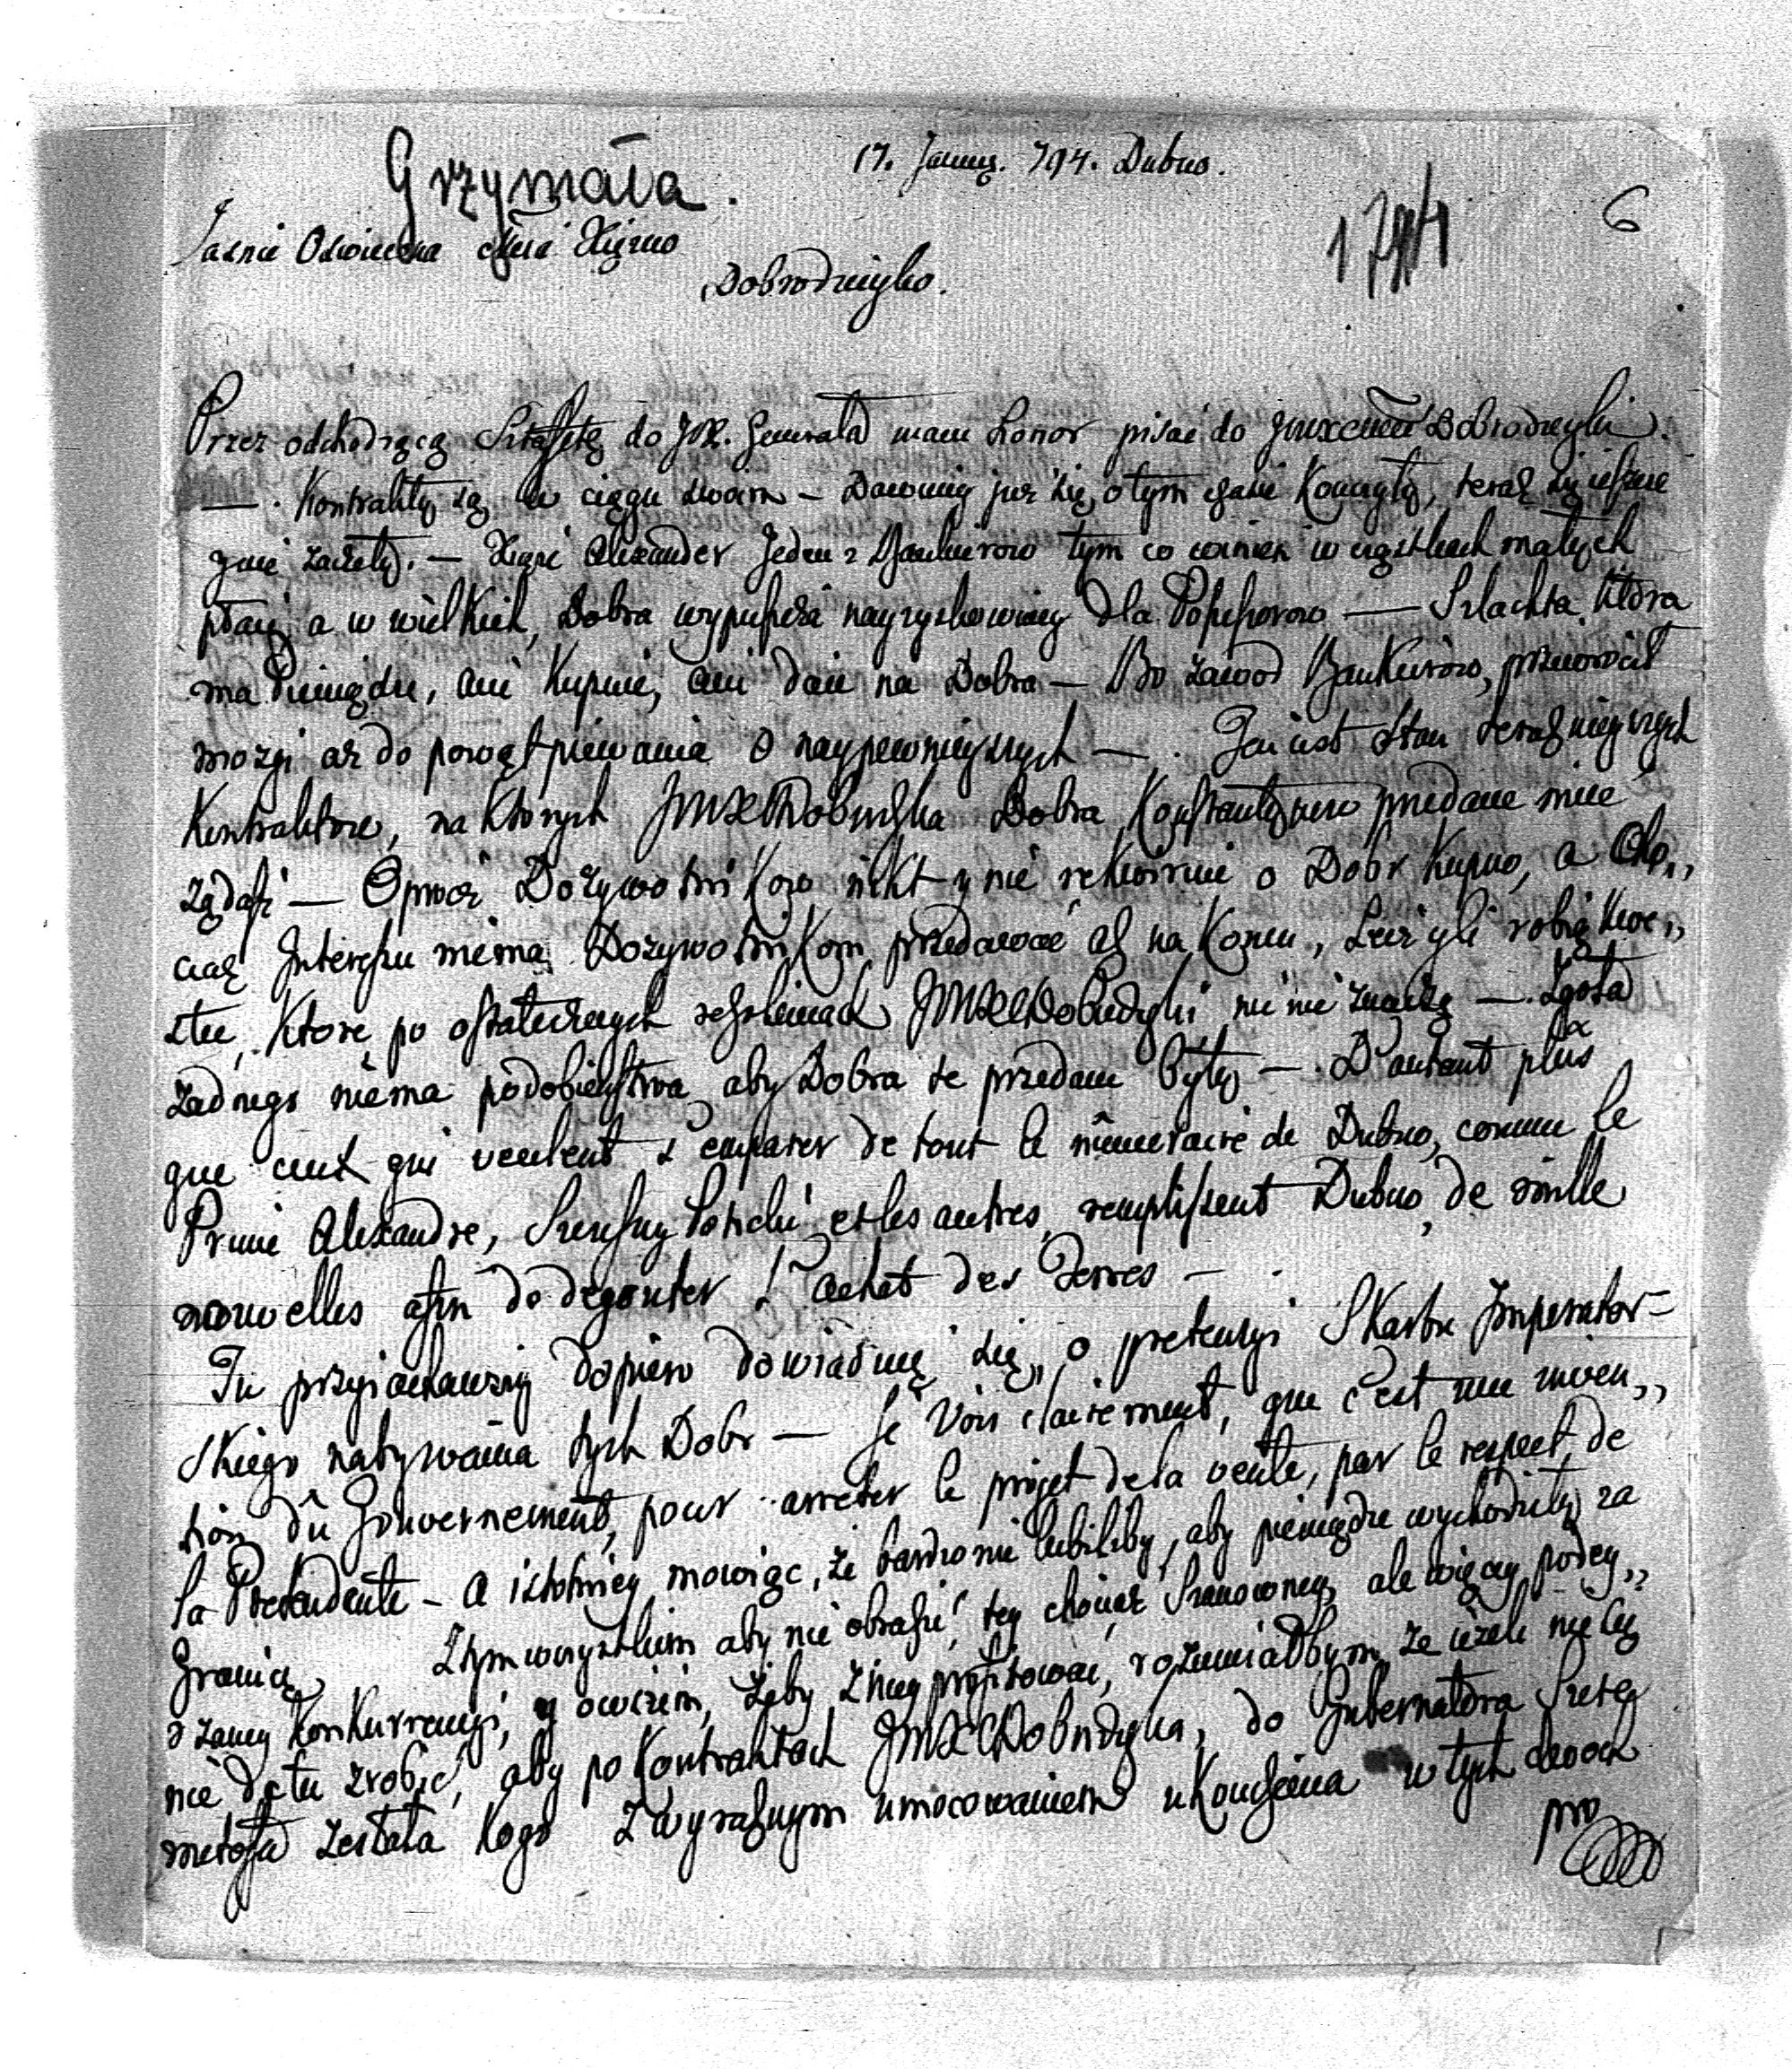 Grzymała.
17. Januar. 794. Dubno.
1794
6
Jasnie Oswiecona Mcia Xięzno
Dobrodzieyko.
Przez odchodzącą Sztafetę do JOX. Generała mam honor pisać do JMXcney Dobrodzieyki.
— . Kontrakty są w ciągu swoim — Dawniey juz się o tym czasie Konczyły, teraz się ieszcze
nie zaczeły. — Xiąże Alexander Jeden z Bankierow tym co winien w cząstkach małych
płaci a w wielkich, Dobra wypuszcza nayzyskowniey dla Possessorow — Szlachta Ktora
ma Pieniądze, ani Kupuie, ani daie na Dobra — Bo zawod Bankierow, przewrocił
mozgi az do powątpiewania o naypewnieyszych — . Ten iest stan terazniеyszych
Kontraktow, na Ktorych JMXMDobrodzka Dobra Konstantynow przedane miec
ządasz — Oprocz Dozywotnikow nikt y nie rekwiruie o Dobr Kupno, a Cho,,
ciaz Interessu niema Dozywotnikom przedawac az na Koncu, Lecz y ci robią kwe,,
stie, Ktore po ostatecznych rezoluciach JMXMDobrodzyki nic nie znaczą — . Zgoła
zadnego niema podobienstwa aby Dobra te przedane były — . D'autant plus
que ceux qui veulent s'emparer de tout le numeraire de Dubno, comme le
Prince Alexandre, Szczesny Potocki et les autres, remplissent Dubno, de mille
nouvelles afin de degouter l'achat des Terres — .
Tu przyiachawszy dopiero dowiaduię się, o pretensyi Skarbu Imperator=
skiego nabywania tych Dobr — Je vois clairement, que c'est une inven,,
tion du Gouvernement, pour arreter le projet de la vente, par le respect, de
la Pretendente — A istotniey mowiąc, ze bardzo nie lubiliby, aby pieniądze wychodziły za
Granicę Z tym wszystkiem aby nie obrazic tey chociaz Szanowney, ale więcey podey,,
rzaney Konkurrencyi, y owszem, zeby z niey profitować, rozumiałbym ze iezeli nic się
nie da tu zrobić, aby po Kontraktach JMXMDobrodzyka, do Gubernatora Szere,,
metoffa zesłała Kogo z wyraznym umocowaniem ukonczenia w tych dwoch
pro